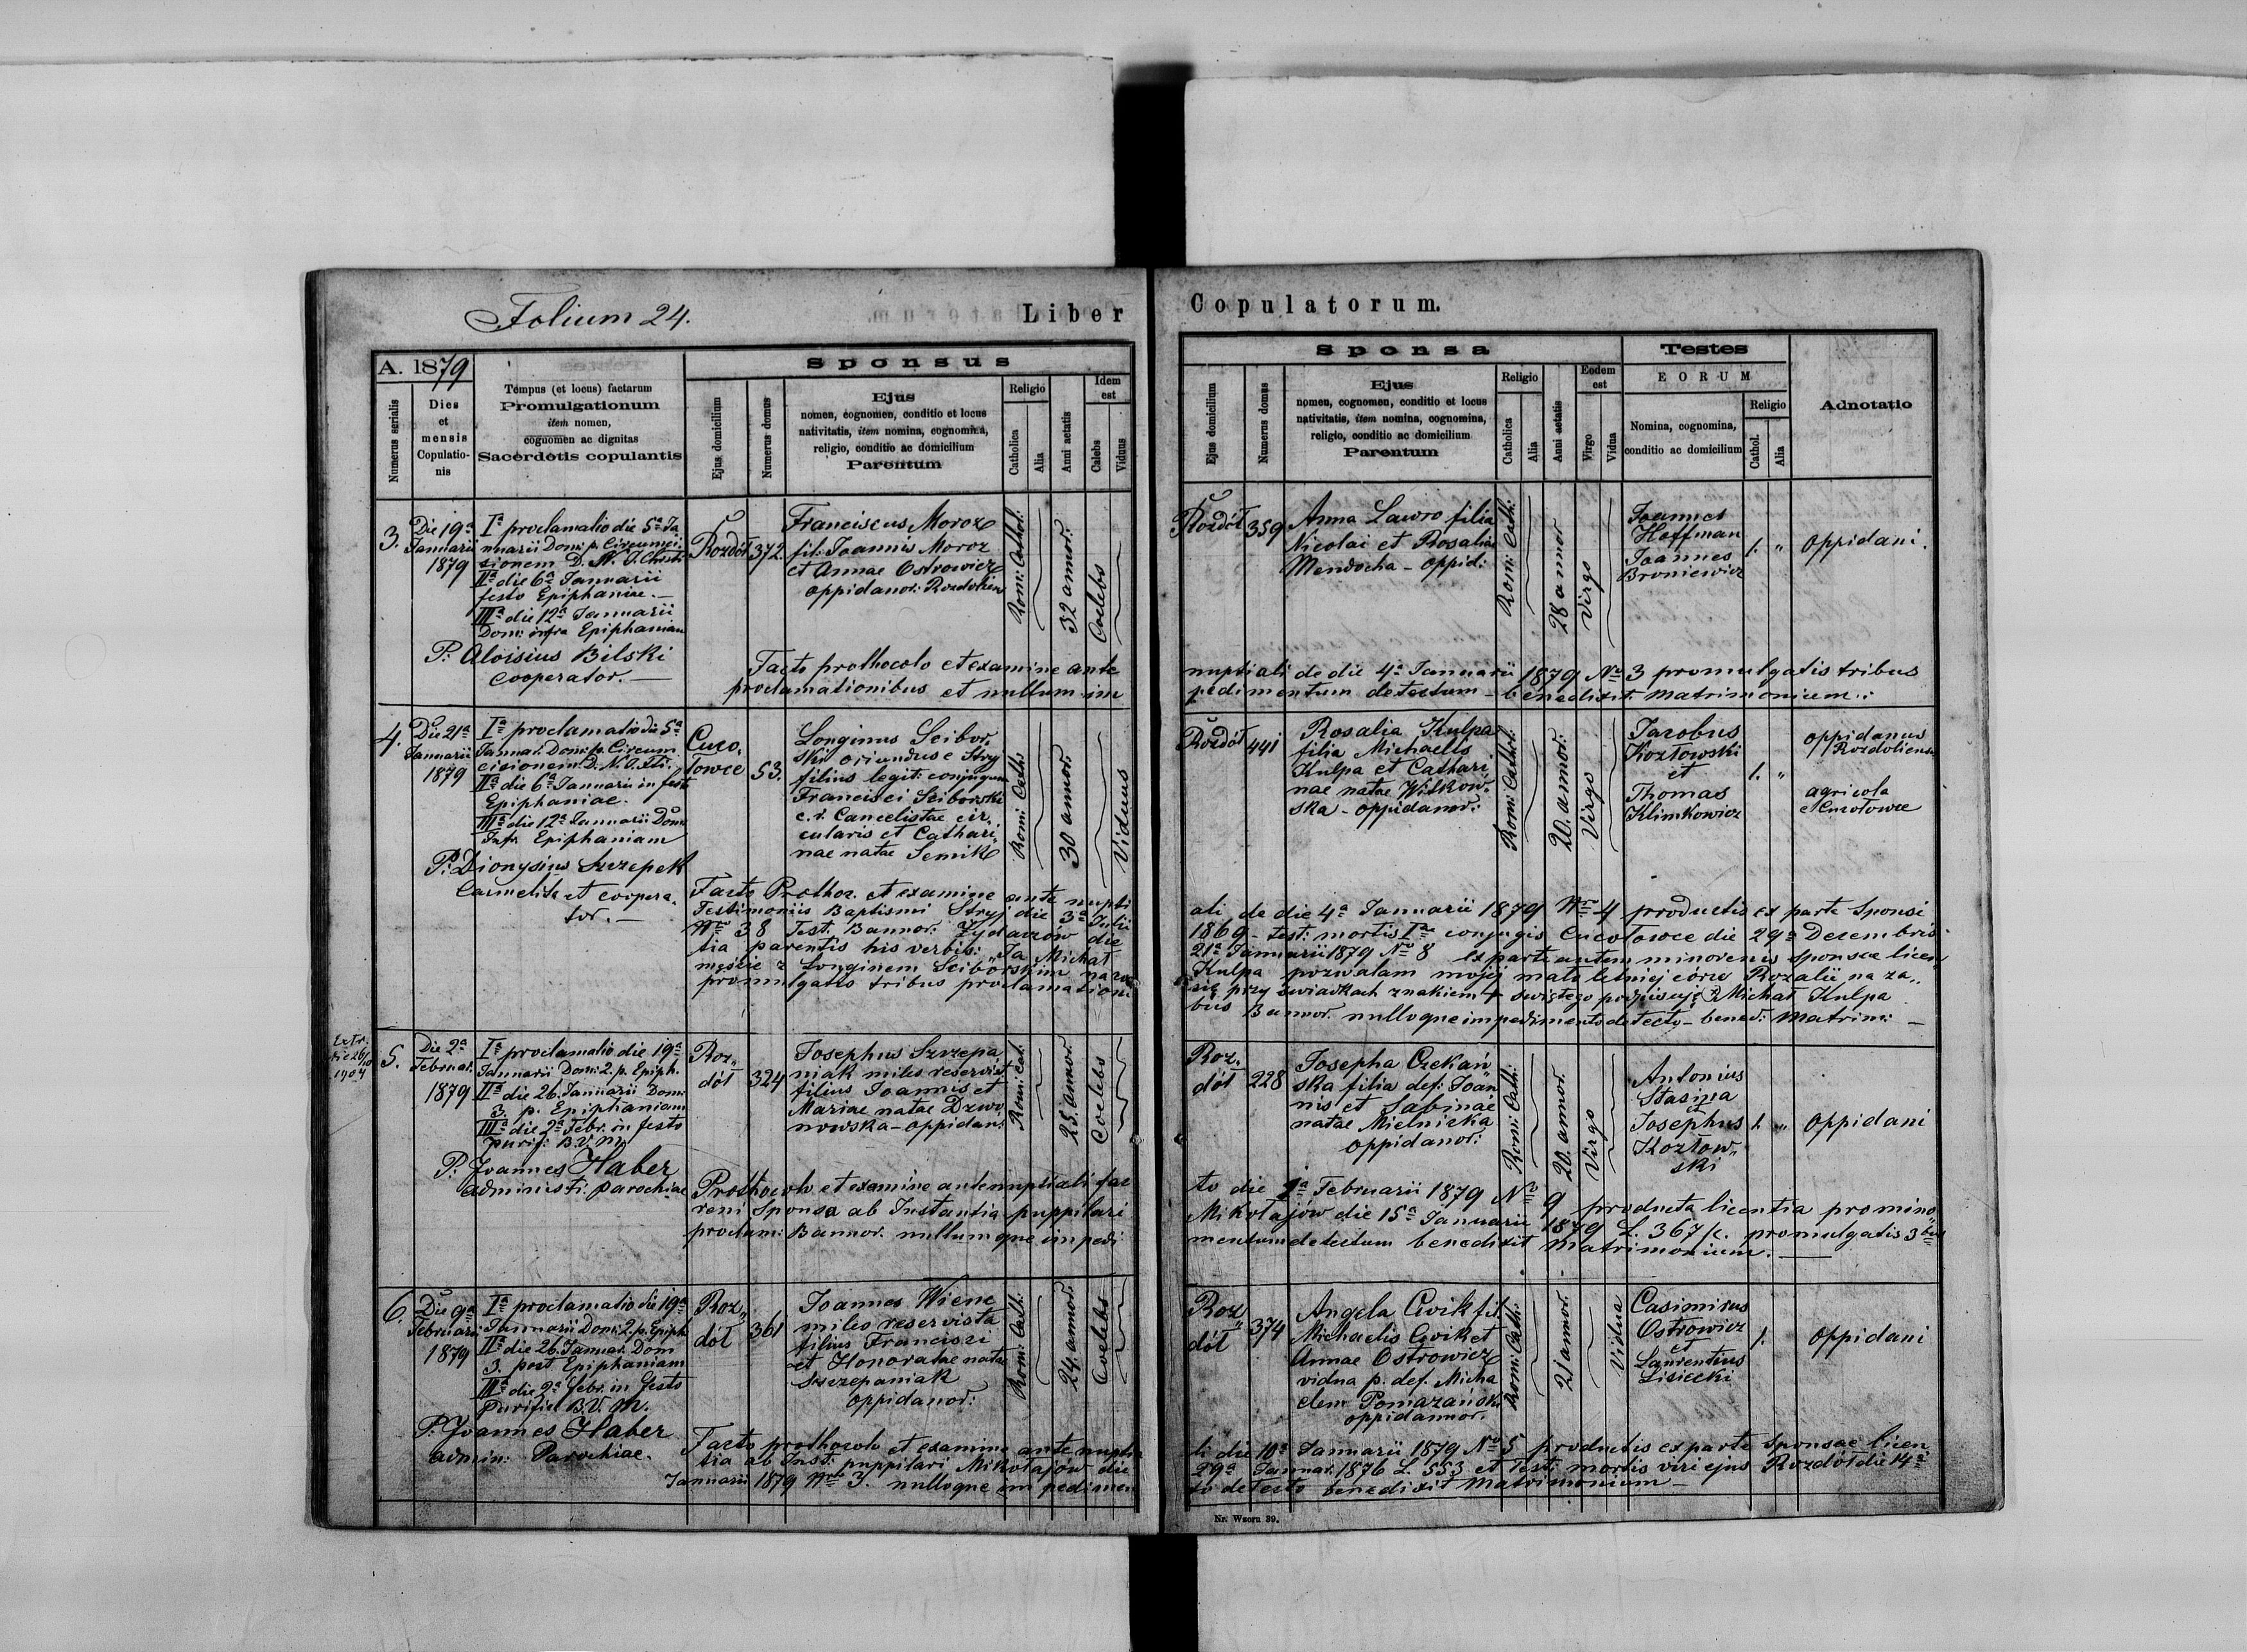 Folium 24.
Liber Copulatorum.
A. 1879
Numerus serialis
Dies
et
mensis
Copulatio-
nis
Tempus (et locus) factarum
Promulgationum
item nomen,
cognomen ac dignitas
Sacerdotis copulantis
Sponsus
Ejus domicilium
Numerus domus
Ejus
nomen, cognomen, conditio et locus
nativitatis, item nomina, cognomina,
religio, conditio ac domicilium
Parentum
Religio
Catholica
Alia
Anni aetatis
Idem
est
Calebs
Viduus
Sponsa
Ejus domicilium
Numerus domus
Ejus
nomen, cognomen, conditio et locus
nativitatis, item nomina, cognomina,
religio, conditio ac domicilium
Parentum
Religio
Catholica
Alia
Anni aetatis
Eodem
est
Virgo
Vidua
Testes
EORUM
Nomina, cognomina,
conditio ac domicilium
Religio
Cathol.
Alia
Adnotatio
3.
Die 19ª
Januarii
1879
Iª proclamatio die 5ª Ja
nuarii Dom: p. Circumci
sionem D. N. J. Christi
IIª die 6ª Januarii
festo Epiphaniae.—
IIIª die 12ª Januarii
Dom: infra Epiphaniam
P: Aloisius Bilski
Cooperator.—
Rozdół
372.
Franciscus Moroz
fil: Joannis Moroz
et Annae Ostrowicz
oppidanor: Rozdolien
Rom: Cathol:
32 annor:
Coelebs
Rozdół
359
Anna Lawro filia
Nicolai et Rosaliae
Mendocha - oppid:
Rom: Cath:
28 annor
Virgo
Joannes
Hoffman
Joannes
Broniewicz
1. "
Oppidani.
Facto prothocolo et examine ante nuptiali de die 4ª Januarii 1879 Nro 3 promulgatis tribus
proclamationibus et nullum im pedimentum detectum - benedixit Matrimonium.:
4.
Die 21ª
Januarii
1879
Iª proclamatio die 5ª
Januar. Dom: p. Circum
cisionem D. N. J. Xti.
IIª die 6ª Januarii in festo
Epiphaniae.
IIIª die 12ª Januarii Dom:
Infr. Epiphaniam
P: Dionysius Szczepek
Carmelita et coopera.
tor.—
Cuco,
łowce
53.
Longinus Scibor,
ski oriundus e Stryj
filius legit: conjugum
Francisci Sciborski
c. r. Cancelistae cir,
cularis et Cathari,
nae natae Semik
Rom: Cath:
30 annor.
Viduus
Rozdół
441
Rosalia Kulpa
filia Michaelis
Kulpa et Cathari,
nae natae Witkow,
ska - oppidanor:
Rom: Cathol:
20. annor:
Virgo
Jacobus
Kozłowski
et
Thomas
Klimkowicz
1. "
oppidanus
Rozdoliensis
agricola
e Cucołowce
Facto Prothoc. et examine ante nupti ali de die 4ª Januarii 1879 Nro 4 productis ex parte Sponsi
Testimoniis Baptismi Stryj die 3ª Julii 1869 - test: mortis Iae conjugis Cucołowce die 29ª Decembris
Nro 38 Test. Bannor. Żydaczów die 21ª Januarii 1879 Nro 8 ex parte autem minorenis Sponsae licen
tia parentis his verbis: „Ja Michał Kulpa pozwalam mojej mało letniej córce Rozalii na za„
męście z Longinem Sciborskim na co się przy świadkach znakiem + swiętego podpisuję Michał Kulpa
promulgatis tribus proclamationi bus Bannor. nulloque impedimento detecto - bened: Matrim: —
Extr.
die 26/10
1904
5.
Die 2ª
Februar.
1879
Iª proclamatio die 19ª
Januarii Dom: 2. p. Epiph.
IIª die 26. Januarii Dom:
3. p. Epiphaniam
IIIª die 2ª Febr. in festo
purif: B. V. M.
P: Joannes Haber
administr: parochiae
Roz„
dół
324
Josephus Szczepa
niak miles reservist
filius Joannis et
Mariae natae Dzwo
nowska - oppidan:
Rom: Cat:
25. annor.
Coelebs
Roz.
dół
228
Josepha Czekań
ska filia def: Joan
nis et Sabinae
natae Mielnicka
oppidanor:
Rom: Cath:
20. annor.
Virgo
Antonius
Stasina
et
Josephus
Kozłow„
ski
1. "
Oppidani
Prothocolo et examine antenuptiali fac to die 1ª Februarii 1879 Nro 9 producta licentia pro mino„
reni Sponsa ab Instantia puppilari Mikołajów die 15ª Januarii 1879 L. 367/c. promulgatis 3bus
proclam: Bannor. nullumque impedi mentum detectum benedixit Matrimonium.
6.
Die 9ª
Februarii
1879
Iª proclamatio die 19ª
Januarii Dom: 2. p. Epiph
IIª die 26. Januar. Dom
3. post Epiphaniam
IIIª die 2ª Febr. in festo
purific B. V. M.
P: Joannes Haber
admin: Parochiae.
Roz„
dół
361
Joannes Wiene
miles reservista
filius Franciszi
et Honoratae natae
Szczepaniak
oppidanor:
Rom: Cath:
24. annor:
Coelebs
Roz„
dół
374
Angela Cwik fil
Michaelis Cwik et
Annae Ostrowicz
vidua p. def. Micha
elem Pomazański
oppidannor.
Rom: Cath:
21 annor.
Vidua
Casimirus
Ostrowicz
et
Laurentius
Lisiecki
1.
Oppidani
Facto prothocolo et examine ante nuptia li die 10ª Januarii 1879 Nro 5 productis ex parte Sponsae licen
tia ab Inst: puppilari Mikołajów die 29ª Januar. 1876 L. 553 et Test: mortis viri ejus Rozdół die 14ª
Januarii 1879 Nro 3. nulloque im pedimen to detecto benedixit Matrimonium —
Nr. Wzoru 39.